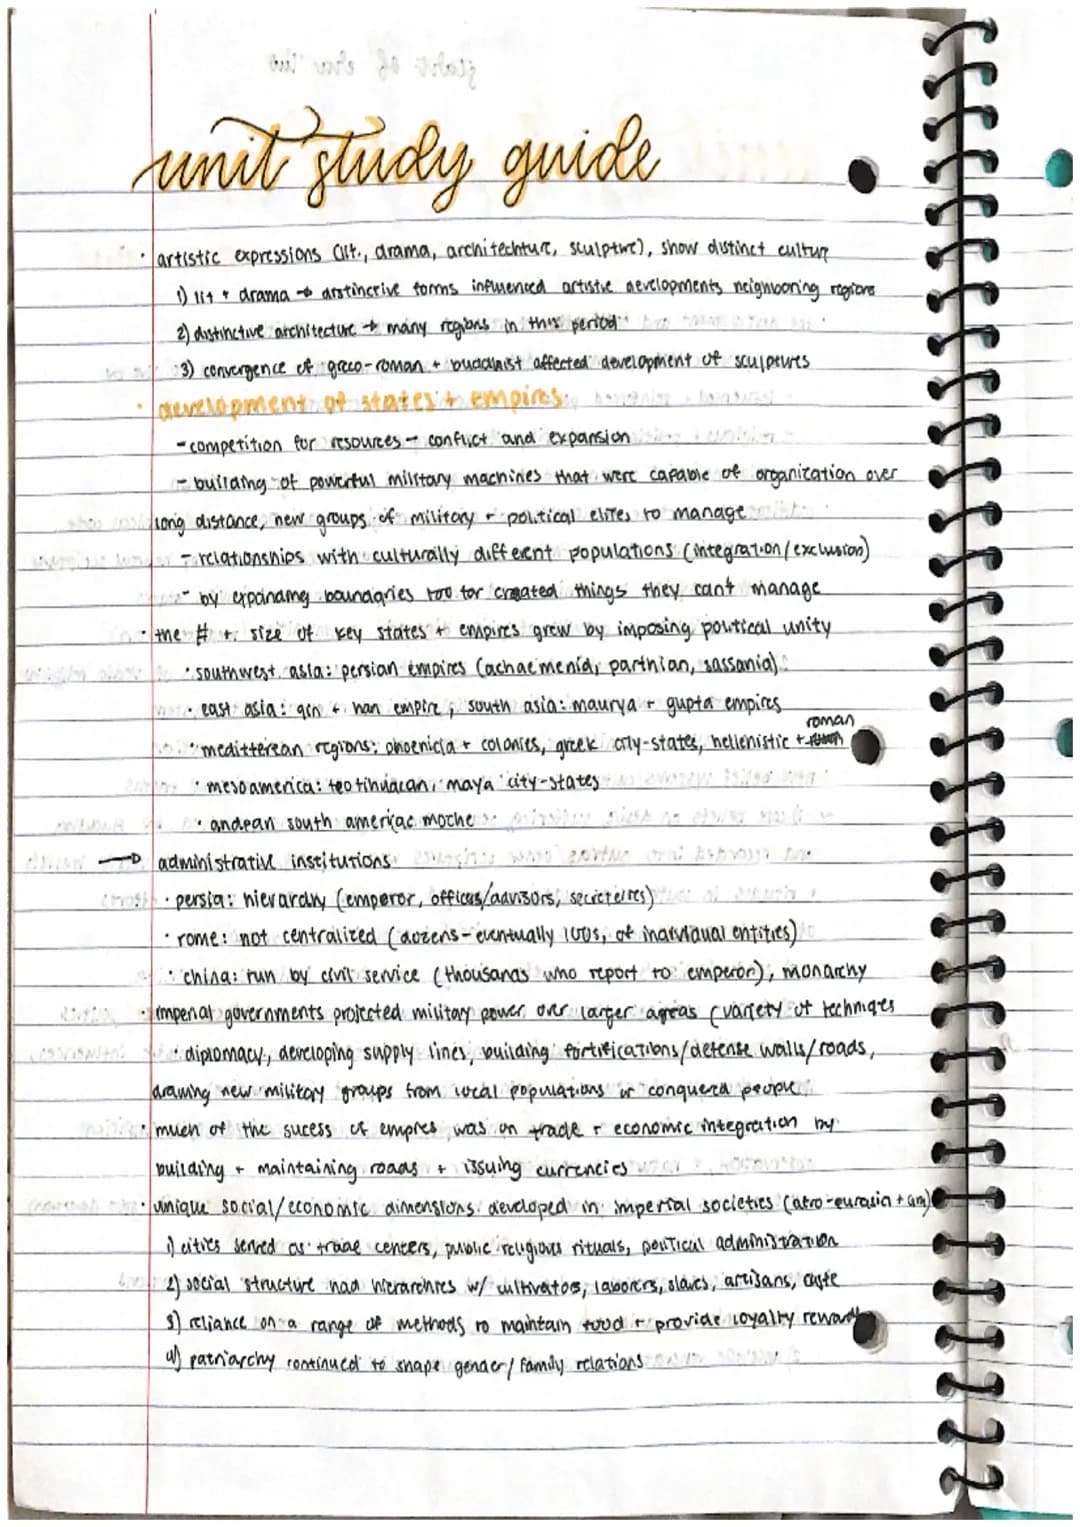 unit study guide
· artistic expressions (lit., drama, architechture, sculpture), show distinct cultur
1) lit + drama → distinctive forms influenced artistic developments neighboring regions
2) distinctive architecture → many regions in this period
3) convergence of greco-roman + buddhist affected development of sculptures
· development of states + empires
- competition for resources → conflict and expansion
- building of powerful military machines that were capable of organization over
long distance, new groups of military + political elites to manage
- relationships with culturally different populations (integration/exclusion)
- by expanding boundaries too far created things they can't manage
· the # + size of key states + empires grew by imposing political unity
· southwest asia: persian empires (achaemenid, parthian, sassania)
· east asia: qin + han empire, south asia: maurya + gupta empires
roman
· meditterean regions: phoenicia + colonies, greek city-states, hellenistic +
· mesoamerica: teotihuacan, maya city-states
· andean south americac moche
→ administrative institutions
· persia: hierarchy (emperor, officers/advisors,
· rome: not centralized (dozens-eventually 100s, of individual entities)
· china: run by civil service (thousands who report to emperor), monarchy
· imperial governments projected military power over larger areas (variety of techniqes
· diplomacy, developing supply lines, building fortifications/defense walls/roads,
drawing new military groups from local populations or conquered people
· much of the sucess of empires was on trade + economic integration by
building + maintaining roads + issuing currencies
· unique social/economic dimensions developed in imperial societies (afro-eurasia + am)
1) cities served as trade centers, public religious rituals, political administration
2) social structure had hierarchies w/ cultivators, laborers, slaves, artisans, caste
3) reliance on a range of methods to maintain food + provide loyalty rewards
4) patriarchy continued to shape gender/family relations